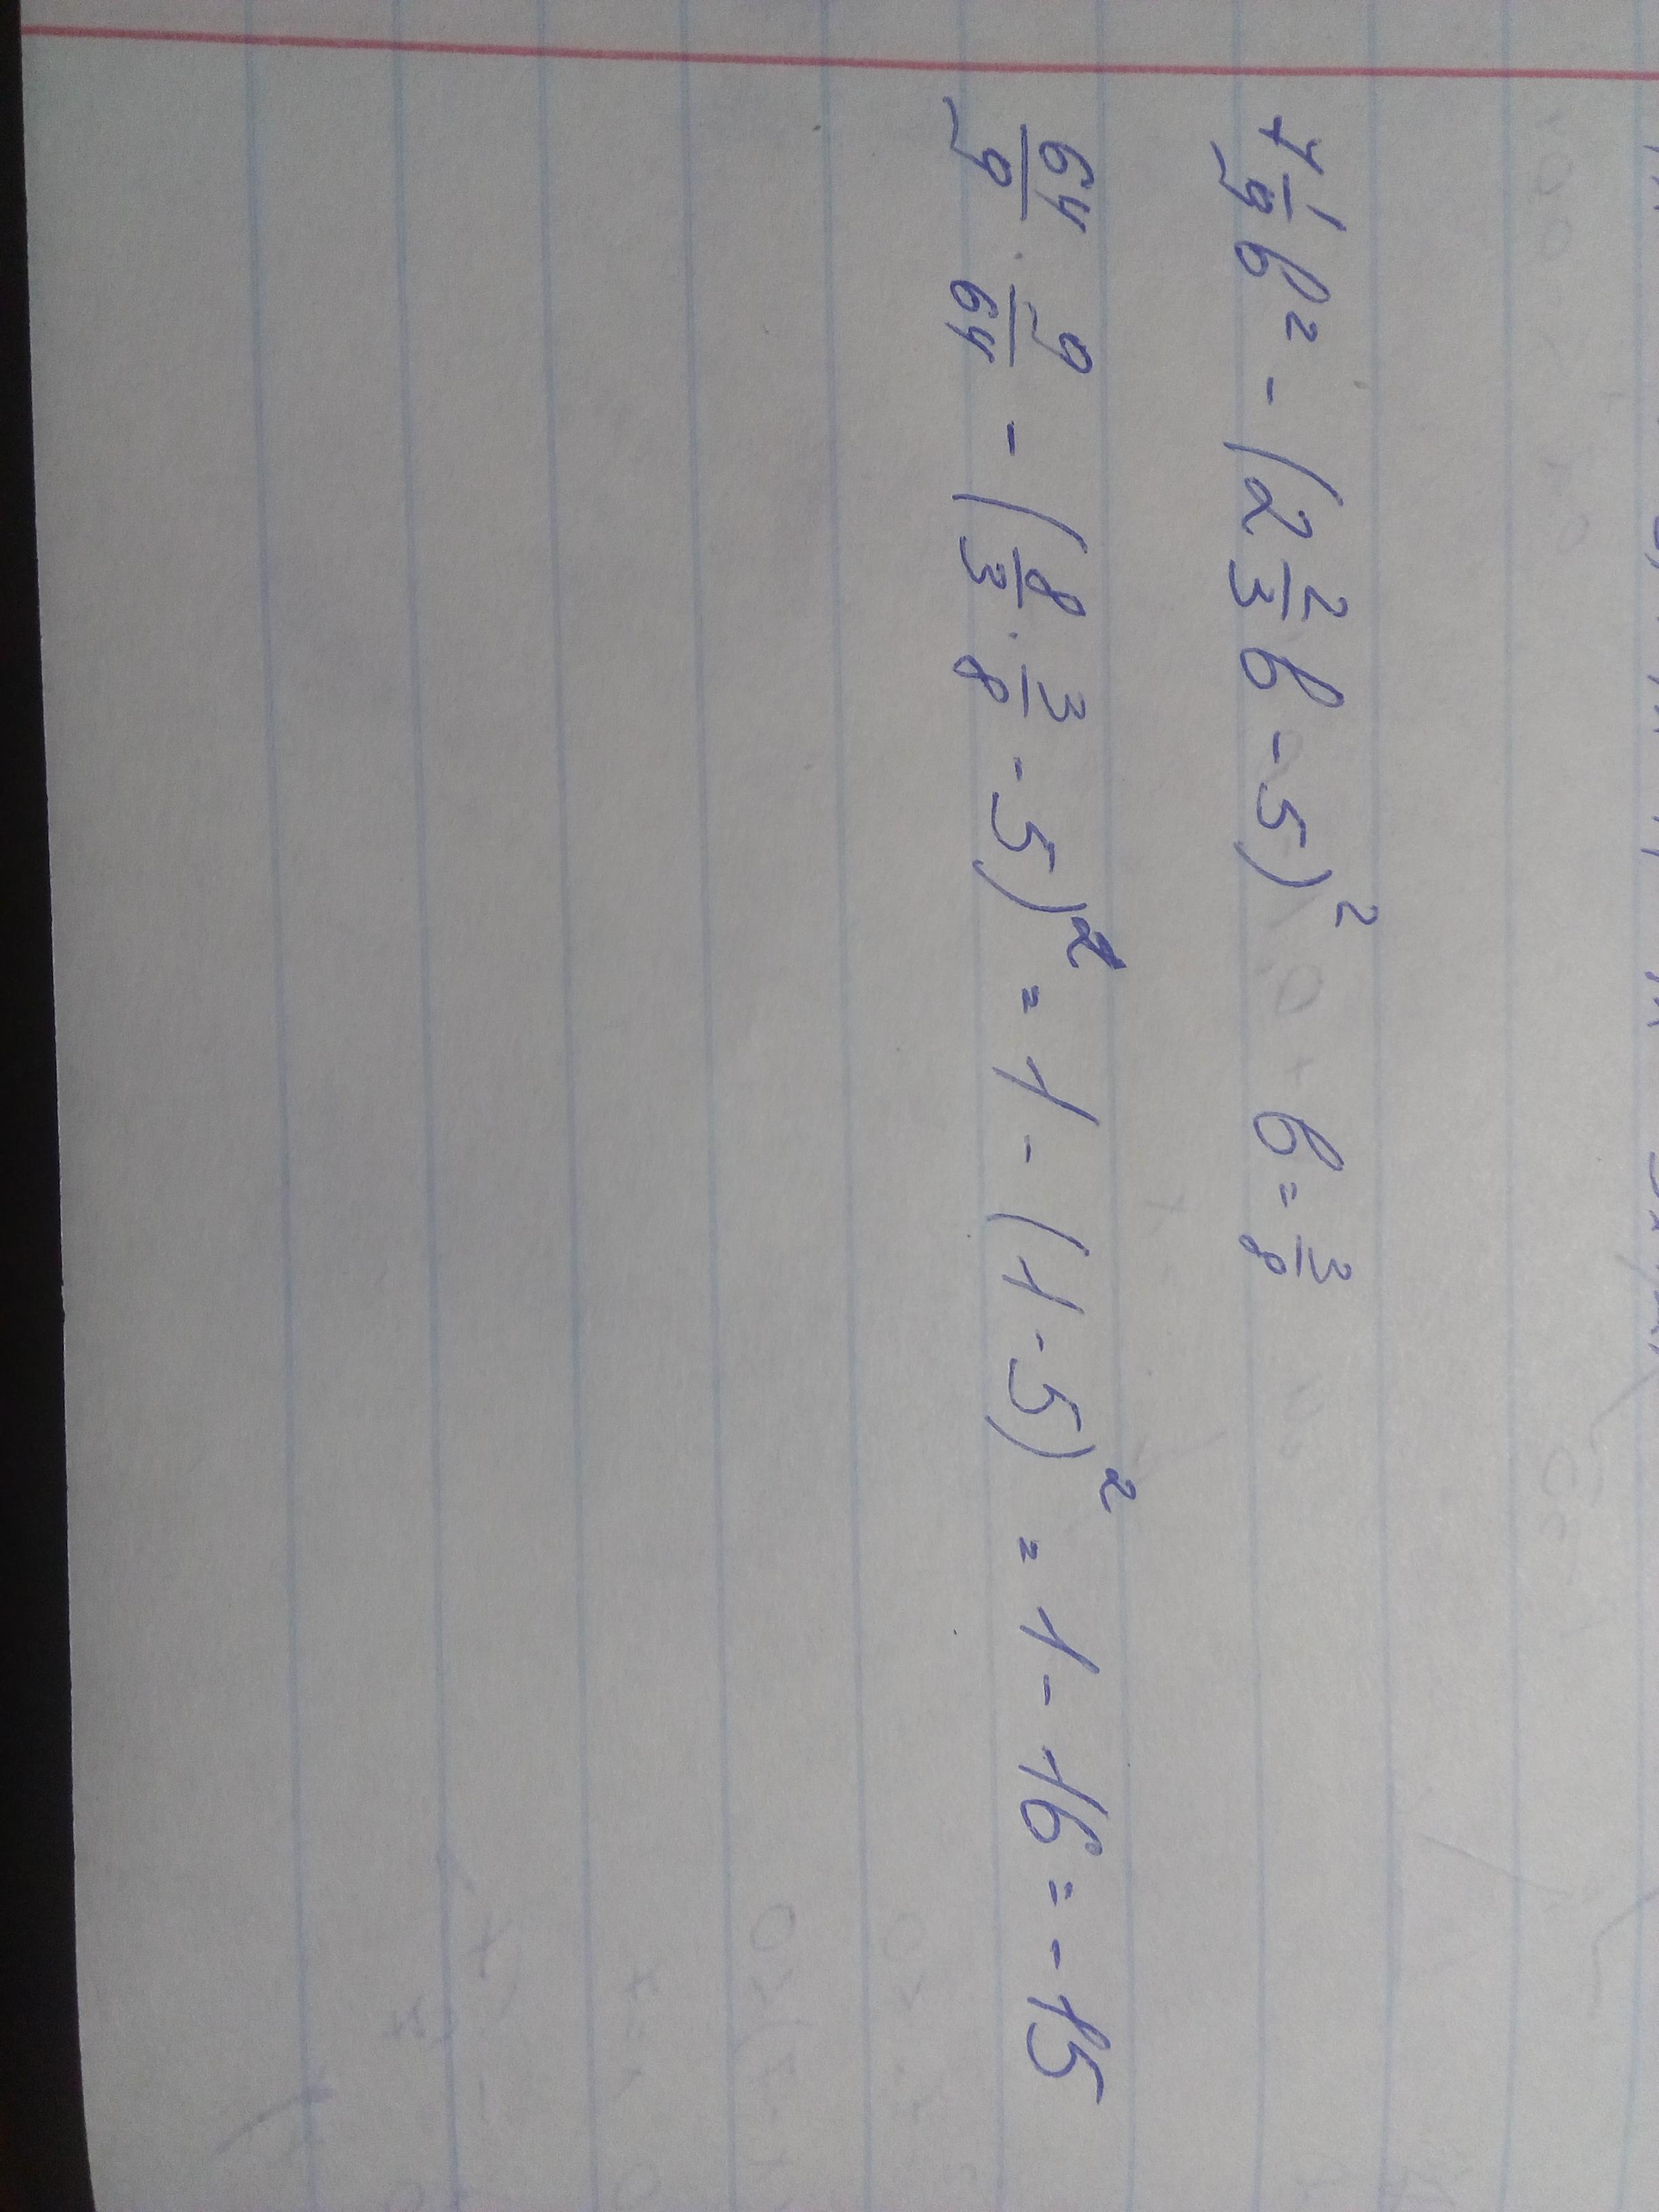 7 1/9 b² - (2 2/3 b - 5)² b = 3/8
64/9 · 9/64 - (8/3 · 3/8 - 5)² = 1 - (1 - 5)² = 1 - 16 = -15